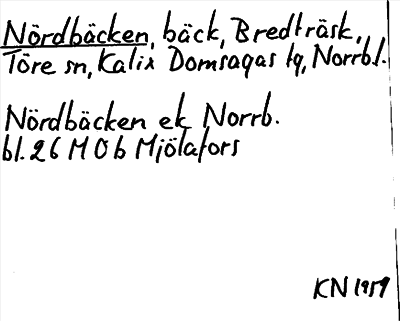 Nördbäcken, bäck, Bredträsk,
Töre sn, Kalix Domsagas tg, Norrb.l.
Nördbäcken ek Norrb.
bl. 26 M Ö b Mjölafors
KN 1959